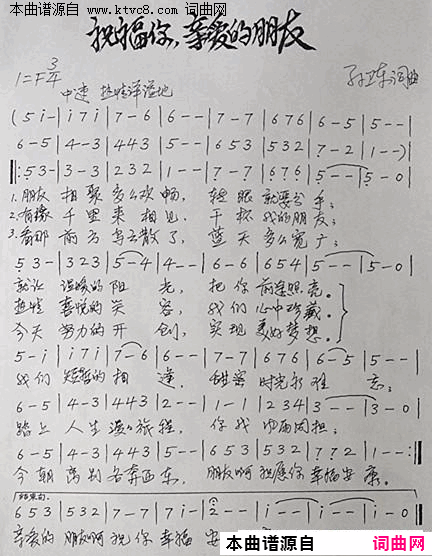 本曲谱源自
www.ktvc8.com 词曲网
祝福你,亲爱的朋友
1=F 3/4
中速 热情洋溢地
词曲
(5 i - | i 7 i | 7 - 6 | 6 - - | 7 - 7 | 6 7 6 | 6 - 5 | 5 - - |
6 - 5 | 4 - 3 | 4 4 3 | 5 - - | 6 5 3 | 5 3 2 | 7 - 2 | 1 - -) |
‖: 5 3 - | 3 - 3 | 2 3 2 | 1 - - | 7 - 7 | 6 7 6 | 5 - - | 5 - 0 |
1. 朋友 相聚多么欢畅, 转眼就要分手;
2. 有缘 千里来相见, 干杯我的朋友;
3. 看那 前方乌云散了, 蓝天多么宽广;
5 3 - | 3 2 3 | 5 - 4 | 4 - - | 6 - 6 | 6 5 4 | 5 - - | 5 - 0 |
就让 温暖的阳光, 把你前途照亮。
热情 喜悦的笑容, 我们心中珍藏。
今天 努力的开创, 实现美好梦想。
5 - i | i 7 i | 7 - 6 | 6 - - | 7 - 7 | 6 7 6 | 6 - 5 | 5 - - |
我们 短暂的相逢, 甜蜜时光永难忘;
6 - 5 | 4 - 3 | 4 4 3 | 2 - - | 1 - 1 | 2 3 4 | 3 - - | 3 - 0 |
踏上 人生漫漫旅程, 你我
6 - 5 | 4 - 3 | 4 4 3 | 5 - - | 6 5 3 | 5 3 2 | 7 7 2 | 1 - - :‖
今朝 离别各奔西东, 朋友啊祝愿你幸福安康。
结束句
6 5 3 | 5 3 2 | 7 - 7 | 7 i - | 2 - - | i - - | i - - | i - 0 ‖
亲爱的 朋友啊 祝你幸福 安
本曲谱源自
词曲网